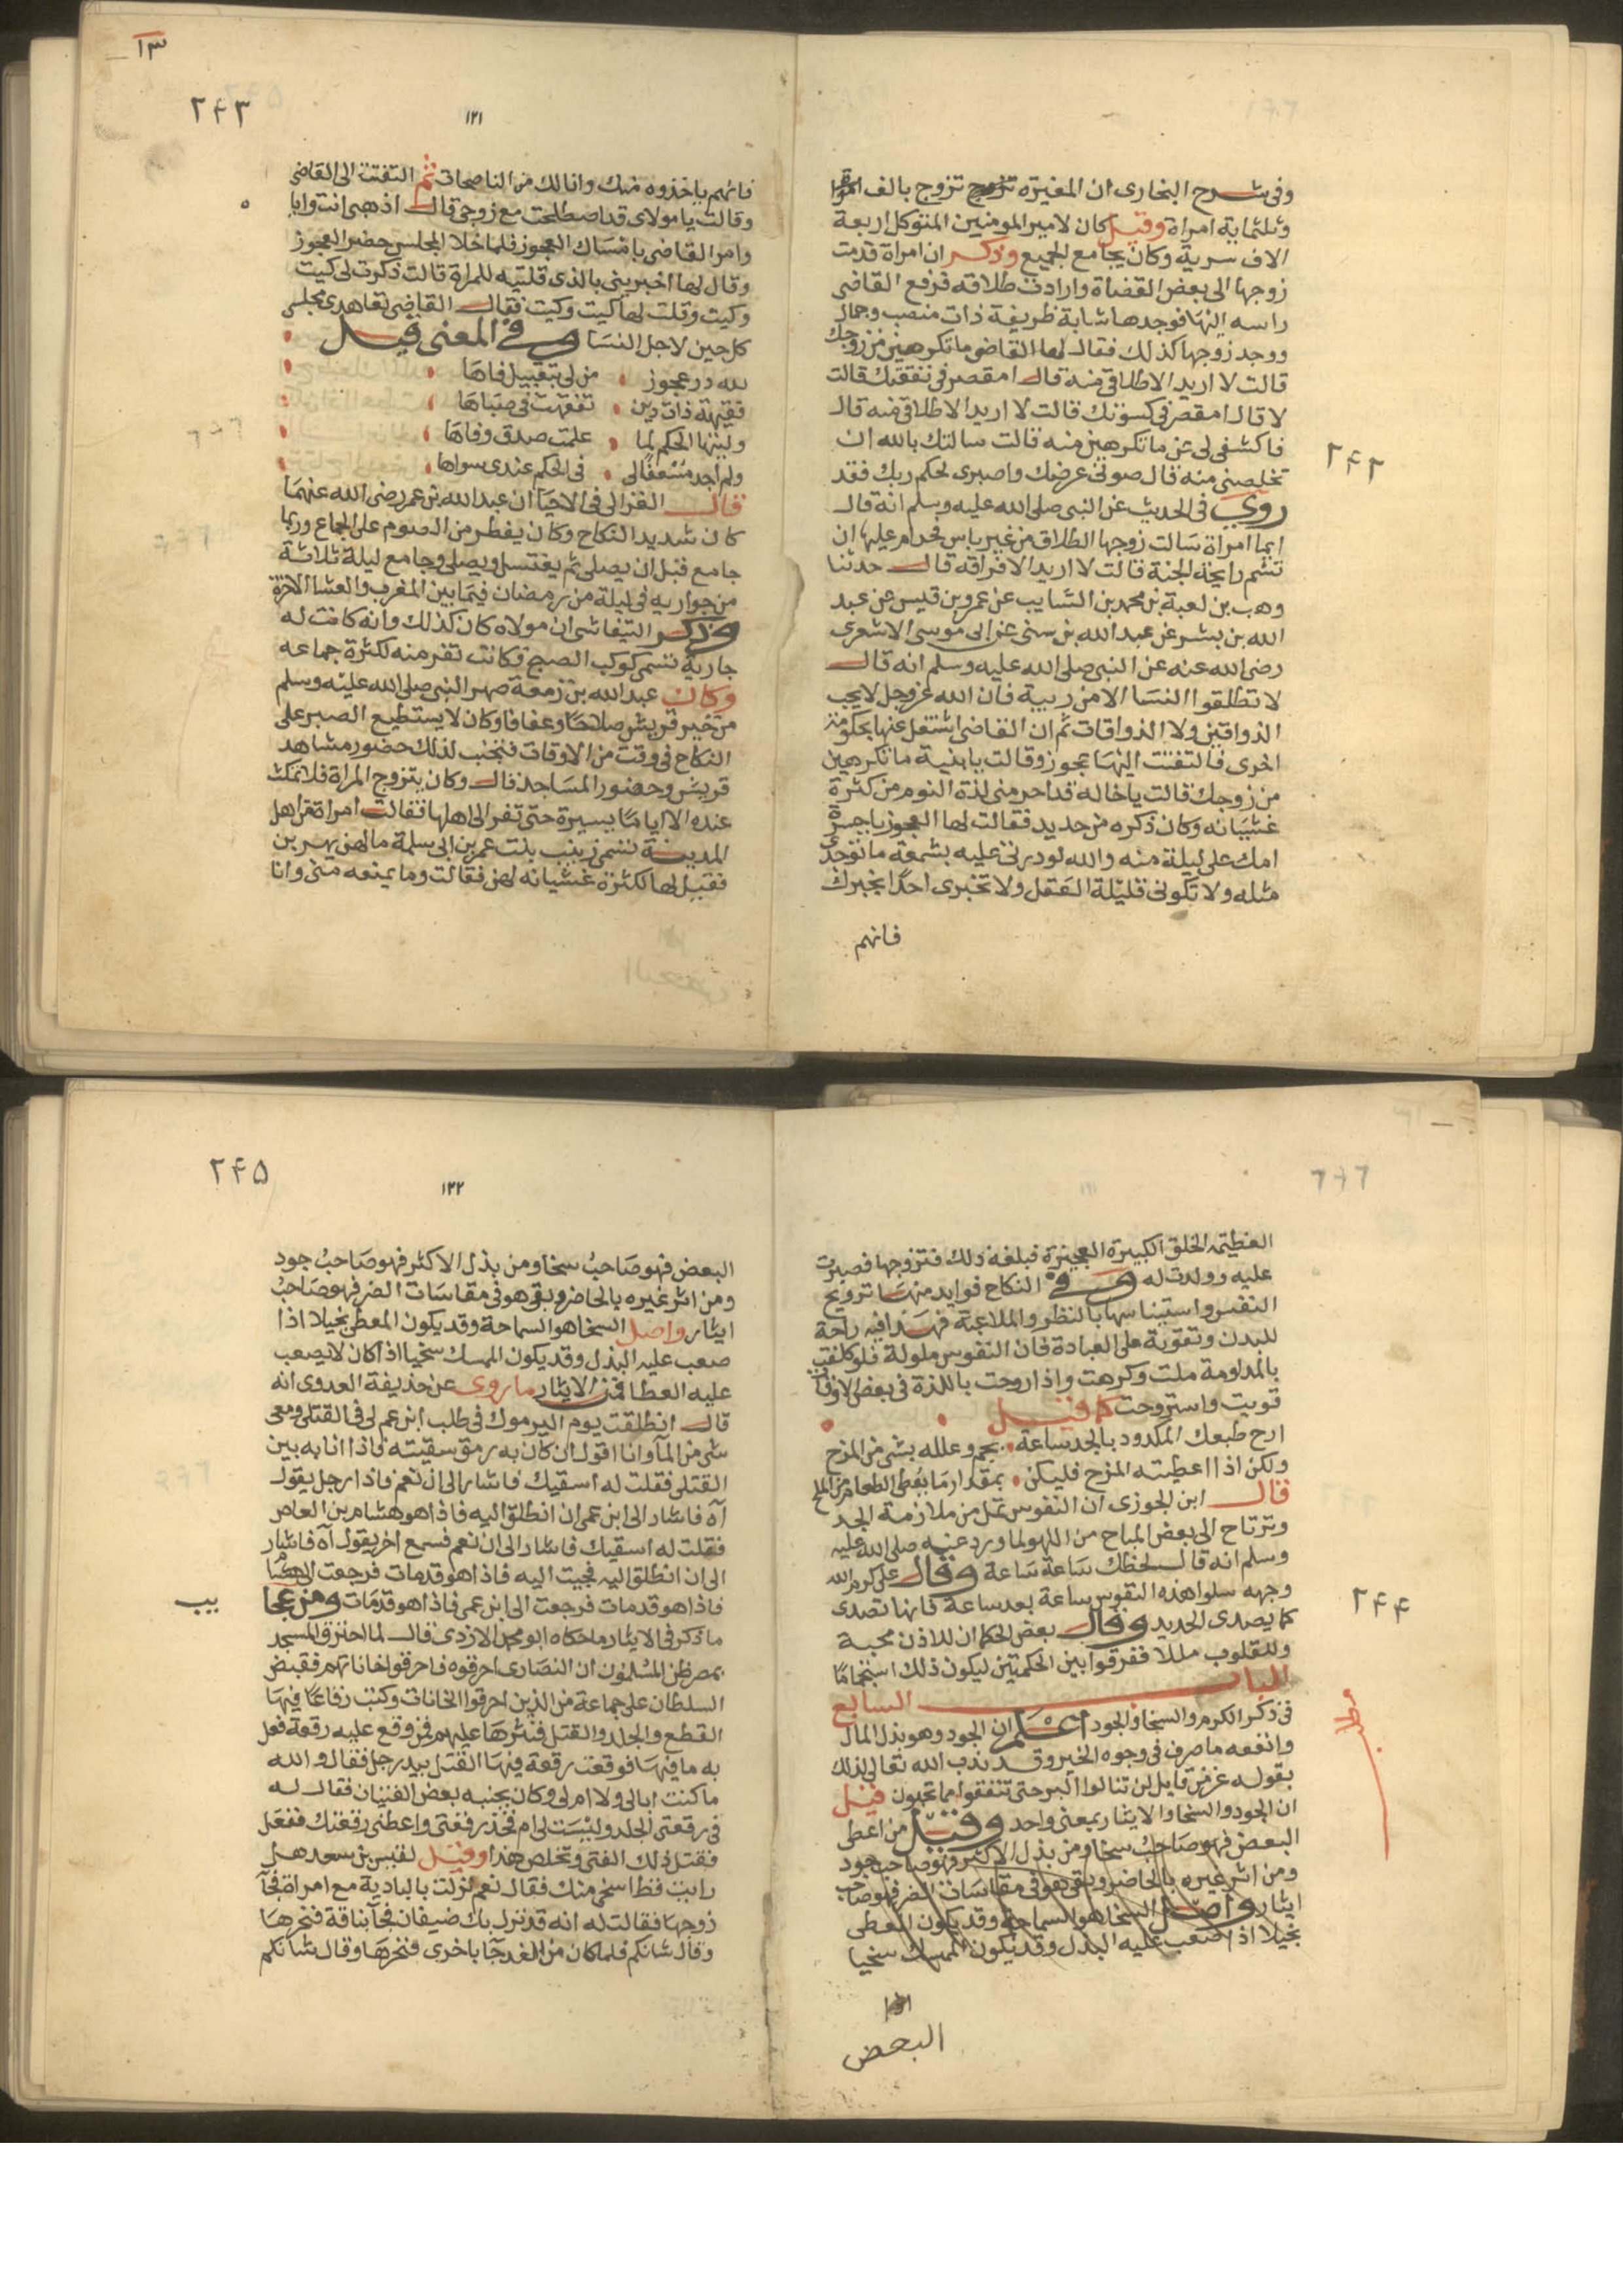 وفى شرح البخارى ان المغيرة تزوج تزوج بالف امراة
وثلثماية امراة وقيل كان لامير المومنين المتوكل اربعة
الاف سرية وكان يجامع الجميع وذكر ان امراة قدمت
زوجها الى بعض القضاة وارادت طلاقه فرفع القاضى
راسه اليها فوجدها شابة ظريفة ذات منصب وجمال
ووجد زوجها كذلك فقال لها القاضى ما تكرهين من زوجك
قالت لا اريد الا طلاقى منه قال امقصر فى نفقتك قالت
لا قال امقصر فى كسوتك قالت لا اريد الا طلاقى منه قال
فاكشفى لى عن ما تكرهين منه قالت سالتك بالله ان
تخلصنى منه قال صونى عرضك واصبرى لحكم ربك فقد
٢۴٢
روى فى الحديث عن النبى صلى الله عليه وسلم انه قال
ايما امراة سالت زوجها الطلاق من غير باس فحرام عليها ان
تشم رايحة الجنة قالت لا اريد الا فراقه قال حدثنا
وهب بن لعبة بن محمد بن السايب عن عمرو بن قيس عن عبد
الله بن بشر عن عبد الله بن سنى عن ابى موسى الاشعرى
رضى الله عنه عن النبى صلى الله عليه وسلم انه قال
لا تطلقوا النسا الا من ريبة فان الله عز وجل لا يحب
الذواقين ولا الذواقات ثم ان القاضى اشتغل عنها بحكومة
اخرى فالتفتت اليها عجوز وقالت يا بنية ما تكرهين
من زوجك قالت يا خاله قد احرمنى لذة النوم من كثرة
غشيانه وكان ذكره من حديد فقالت لها العجوز يا حسرة
امك على ليلة منه والله لو درتى عليه بشمعة ما توجدى
مثله ولا تكونى قليلة العقل ولا تخبرى احدا بخبرك
فانهم
١٣
٢۴٣
١٢١
فانهم ياخذوه منك وانا لك من الناصحات ثم التفتت الى القاضى
وقالت يا مولاى قد اصطلحت مع زوجى قال اذهبى انت وايا
وامر القاضى بامساك العجوز فلما خلا المجلس حضر العجوز
وقال لها اخبرينى بالذى قلتيه للمراة قالت ذكرت لى كيت
وكيت وقلت لها كيت وكيت فقال القاضى تعاهدى مجلسى
كل حين لاجل النسا وفى المعنى قيل
لله در عجوز من لى بتقبيل فاها
فقيهة ذات دين تفقهت فى صباها
وليتها الحكم لما علمت صدق وفاها
ولم اجد مسعفا لى فى الحكم عندى سواها
قال الغزالى فى الاحيا ان عبد الله بن عمر رضى الله عنهما
كان شديد النكاح وكان يفطر من الصوم على الجماع وربما
جامع قبل ان يصلى ثم يغتسل ويصلى وجامع ليلة ثلاثة
من جواريه فى ليلة من رمضان فيما بين المغرب والعشا الاخرة
وذكر التيفاشى ان مولاه كان كذلك وانه كانت له
جارية تسمى كوكب الصبح وكانت تفر منه لكثرة جماعه
وكان عبد الله بن زمعة صهر النبى صلى الله عليه وسلم
من خير قريش صلاحا وعفافا وكان لا يستطيع الصبر على
النكاح فى وقت من الاوقات فتجنب لذلك حضور مشاهد
قريش وحضور المساجد قال وكان يتزوج المراة فلا تمكث
عنده الا اياما يسيرة حتى تفر الى اهلها فقالت امراة من اهل
المدينة تسمى زينب بنت عمر بن ابى سلمة ما لهن يهربن
فقيل لها لكثرة غشيانه لهن فقالت وما يمنعه منى وانا
العظيمة الخلق الكبيرة العجيزة فبلغه ذلك فتزوجها فصبرت
عليه وولدت له وفى النكاح فوايد منها ترويح
النفس واستيناسها بالنظر والملاعبة فهذا فيه راحة
للبدن وتقوية على العبادة فان النفوس ملولة فلو كلفت
بالمداومة ملت وكرهت واذا روحت باللذة فى بعض الاوقات
قويت واستروحت كما قيل
ارح طبعك المكدود بالجد ساعة يجم وعلله بشى من المزح
ولكن اذا اعطيته المزح فليكن بمقدار ما يعطى الطعام من الملح
قال ابن الجوزى ان النفوس تمل من ملازمة الجد
وترتاح الى بعض المباح من اللهو لما ورد عنه صلى الله عليه
وسلم انه قال لحنظلك ساعة ساعة وقال على كرم الله
وجهه سلوا هذه النفوس ساعة بعد ساعة فانها تصدى
٢۴۴
كما يصدى الحديد وقال بعض الحكما ان للاذن محبة
وللقلوب مللا ففرقوا بين الحكمتين ليكون ذلك استجماما
الباب السابع
مطلب
فى ذكر الكرم والسخا والجود اعلم ان الجود وهو بذل المال
وانفعه ما صرف فى وجوه الخير وقد ندب الله تعالى لذلك
بقوله عز من قايل لن تنالوا البر حتى تنفقوا مما تحبون قيل
ان الجود والسخا والايثار بمعنى واحد وقيل من اعطى
البعض فهو صاحب سخا ومن بذل الاكثر فهو صاحب جود
ومن اثر غيره بالحاضر وبقى هو فى مقاسات الضر فهو صاحب
ايثار واصل السخا هو السماحة وقد يكون المعطى
بخيلا اذا صعب عليه البذل وقد يكون الممسك سخيا
البعض
٢۴۵
١٢٢
البعض فهو صاحب سخا ومن بذل الاكثر فهو صاحب جود
ومن اثر غيره بالحاضر وبقى هو فى مقاسات الضر فهو صاحب
ايثار واصل السخا هو السماحة وقد يكون المعطى بخيلا اذا
صعب عليه البذل وقد يكون الممسك سخيا اذا كان لا يصعب
عليه العطا فمن الايثار ما روى عن حذيفة العدوى انه
قال انطلقت يوم اليرموك فى طلب ابن عم لى فى القتلى ومعى
شى من الماء وانا اقول ان كان به رمق سقيته فاذا انا به بين
القتلى فقلت له اسقيك فاشار الى ان نعم فاذا رجل يقول
آه فاشار الى ابن عمى ان انطلق اليه فاذا هو هشام بن العاص
فقلت له اسقيك فاشار الى ان نعم فسمع اخر يقول آه فاشار
الى ان انطلق اليه فجيت اليه فاذا هو قد مات فرجعت الى هشام
فاذا هو قد مات فرجعت الى ابن عمى فاذا هو قد مات ومن عجا
يب
ما ذكر فى الايثار ما حكاه ابو محمد الازدى قال لما احترق المسجد
بمصر ظن المسلمون ان النصارى احرقوه فاحرقوا خاناتهم فقبض
السلطان على جماعة من الذين احرقوا الخانات وكتب رقاعا فيها
القطع والجلد والقتل فنثرها عليهم فمن وقع عليه رقعة فعل
به ما فيها فوقعت رقعة فيها القتل بيد رجل فقال والله
ما كنت ابالى ولا ام لى وكان بجنبه بعض الفتيان فقال له
فى رقعتى الجلد وليست لى ام فخذ رقعتى واعطنى رقعتك ففعل
فقتل ذلك الفتى وتخلص هذا وقيل لقيس بن سعد هل
رايت قط اسخى منك فقال نعم نزلت بالبادية مع امراة فجآ
زوجها فقالت له انه قد نزل بك ضيفان فجآ بناقة فنحرها
وقال شانكم فلما كان من الغد جآ باخرى فنحرها وقال شانكم